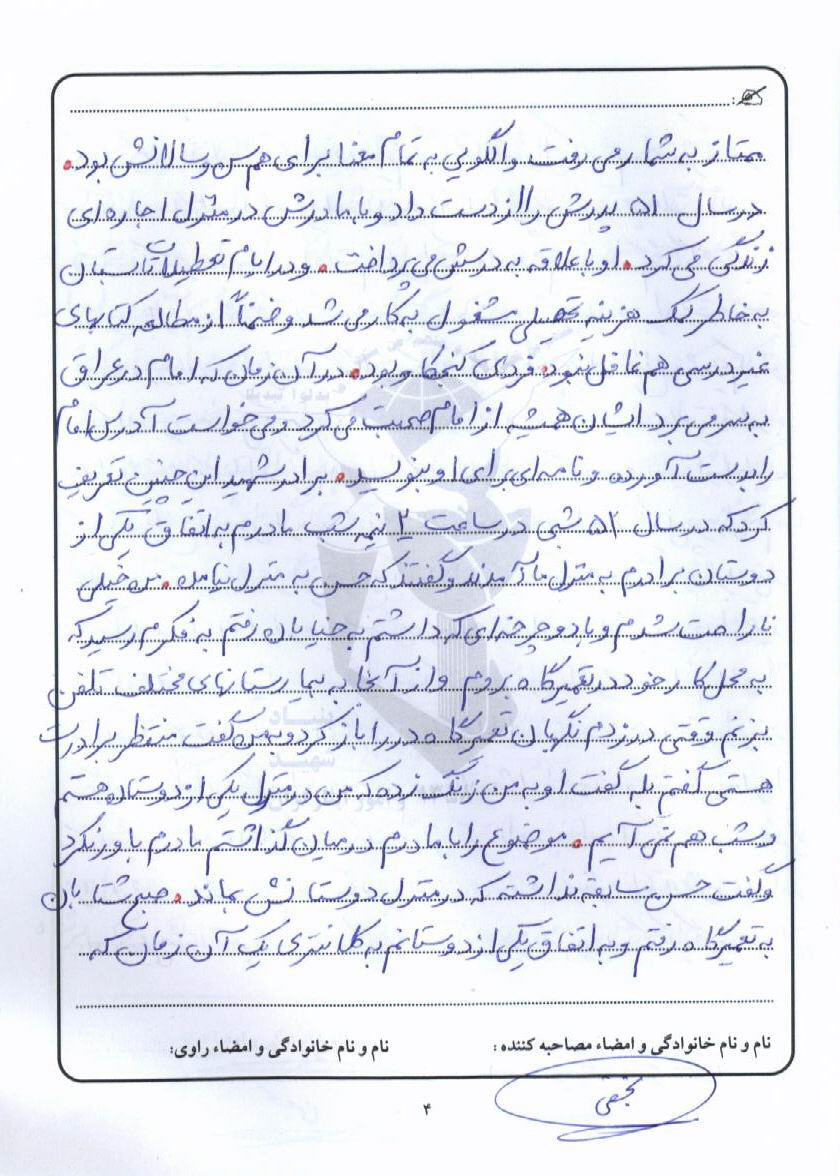 ممتاز به شمار می رفت و الگویی به تمام معنا برای هم سن و سالانش بود.
در سال ۵۱ پدرش را از دست داد و با مادرش در منزل اجاره ای
زندگی می کرد. او با علاقه به درسش می پرداخت. و در ایام تعطیلات تابستان
به خاطر کمک هزینه تحصیلی مشغول به کار می شد و ضمناً از مطالعه کتابهای
غیر درسی هم غافل نبود. فردی کنجکاو بود. در آن زمان که امام در عراق
به سر می برد ایشان همیشه از امام صحبت می کرد و می خواست آدرس امام
را بدست آورده و نامه ای برای او بنویسد. برادر شهید این چنین تعریف
کرد که در سال ۵۲ شبی در ساعت ۲ نیمه شب مادرم به اتفاق یکی از
دوستان برادرم به منزل ما آمدند و گفتند که حسن به منزل نیامده. من خیلی
ناراحت شدم و با دوچرخه ای که داشتم به خیابان رفتم به فکرم رسید که
به محل کار خود در تعمیرگاه بروم و از آنجا به بیمارستانهای مختلف تلفن
بزنم وقتی در زدم نگهبان تعمیرگاه در را باز کرد و به من گفت منتظر برادرت
هستی گفتم بله گفت او به من زنگ زده که من در منزل یکی از دوستان هستم
و شب هم نمی آیم. موضوع را با مادرم در میان گذاشتم مادرم باور نکرد
و گفت حسن سابقه نداشته که در منزل دوستانش بماند. صبح شتابان
به تعمیرگاه رفتم و به اتفاق یکی از دوستانم به کلانتری یک آن زمان که
نام و نام خانوادگی و امضاء مصاحبه کننده : نام و نام خانوادگی و امضاء راوی:
۴